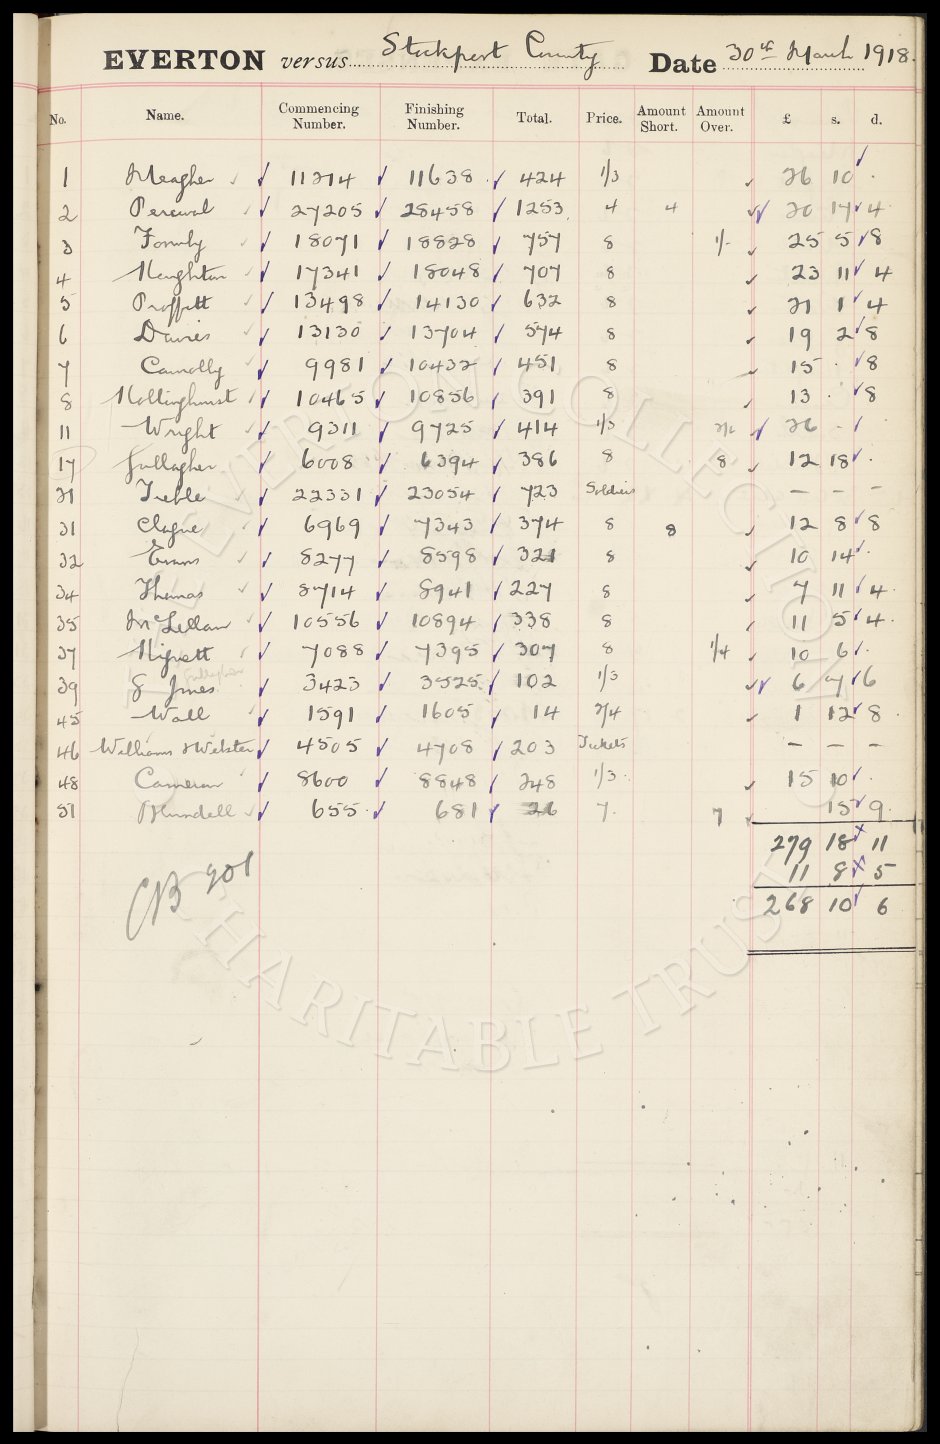 EVERTON versus Stockport County Date 30th March 1918.
No. Name. Commencing Number. Finishing Number. Total. Price. Amount Short. Amount Over. £ s. d.
1 Meagher 11214 11638 424 1/3 26 10 .
2 Percival 27205 28458 1253 4 4 20 17 4
3 Formby 18071 18828 757 8 1/- 25 5 8
4 Houghton 17341 18048 707 8 23 11 4
5 Proffitt 13498 14130 632 8 21 1 4
6 Davies 13130 13704 574 8 19 2 8
7 Connolly 9981 10432 451 8 15 . 8
8 Hollinghurst 10465 10856 391 8 13 . 8
11 Wright 9311 9725 414 1/3 2/6 26 - .
17 Gallagher 6008 6394 386 8 8 12 18 .
21 Treble 22331 23054 723 Soldiers — — —
31 Clague 6969 7343 374 8 8 12 8 8
32 Evans 8277 8598 321 8 10 14 .
34 Thomas 8714 8941 227 8 7 11 4
35 McLellan 10556 10894 338 8 11 5 4
37 Hignett 7088 7395 307 8 1/4 10 6 .
Gallagher
39 G Jones 3423 3525 102 1/3 6 7 6
45 Wall 1591 1605 14 2/4 1 12 8
46 Williams & Webster 4505 4708 203 Tickets — — —
48 Cameron 8600 8848 248 1/3 15 10 .
51 Blundell 655 681 26 7 7 15 9
279 18 11
11 8 5
CB 901 268 10 6
EVERTON COLLECTION
CHARITABLE TRUST